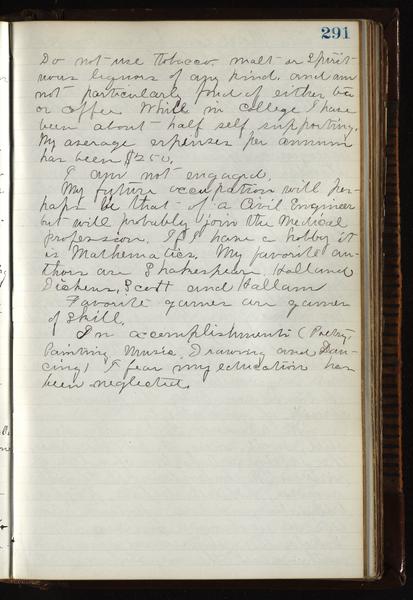 291
Do not use tobacco, malt or Spirit-
uous liquors of any kind, and am
not particularly fond of either tea
or coffee. While in college I have
been about half self supporting.
My average expenses per annum
has been $250.
I am not engaged.
My future occupation will per-
haps be that of a Civil Engineer
but will probably join the Medical
profession. If I have a hobby it
is Mathematics. My favorite au-
thors are Shakespear, Holland
Dickens, Scott and Hallam
Favorite games are games
of skill.
In accomplishments (Poetry,
Painting Music, Drawing and Dan-
cing) I fear my education has
been neglected.